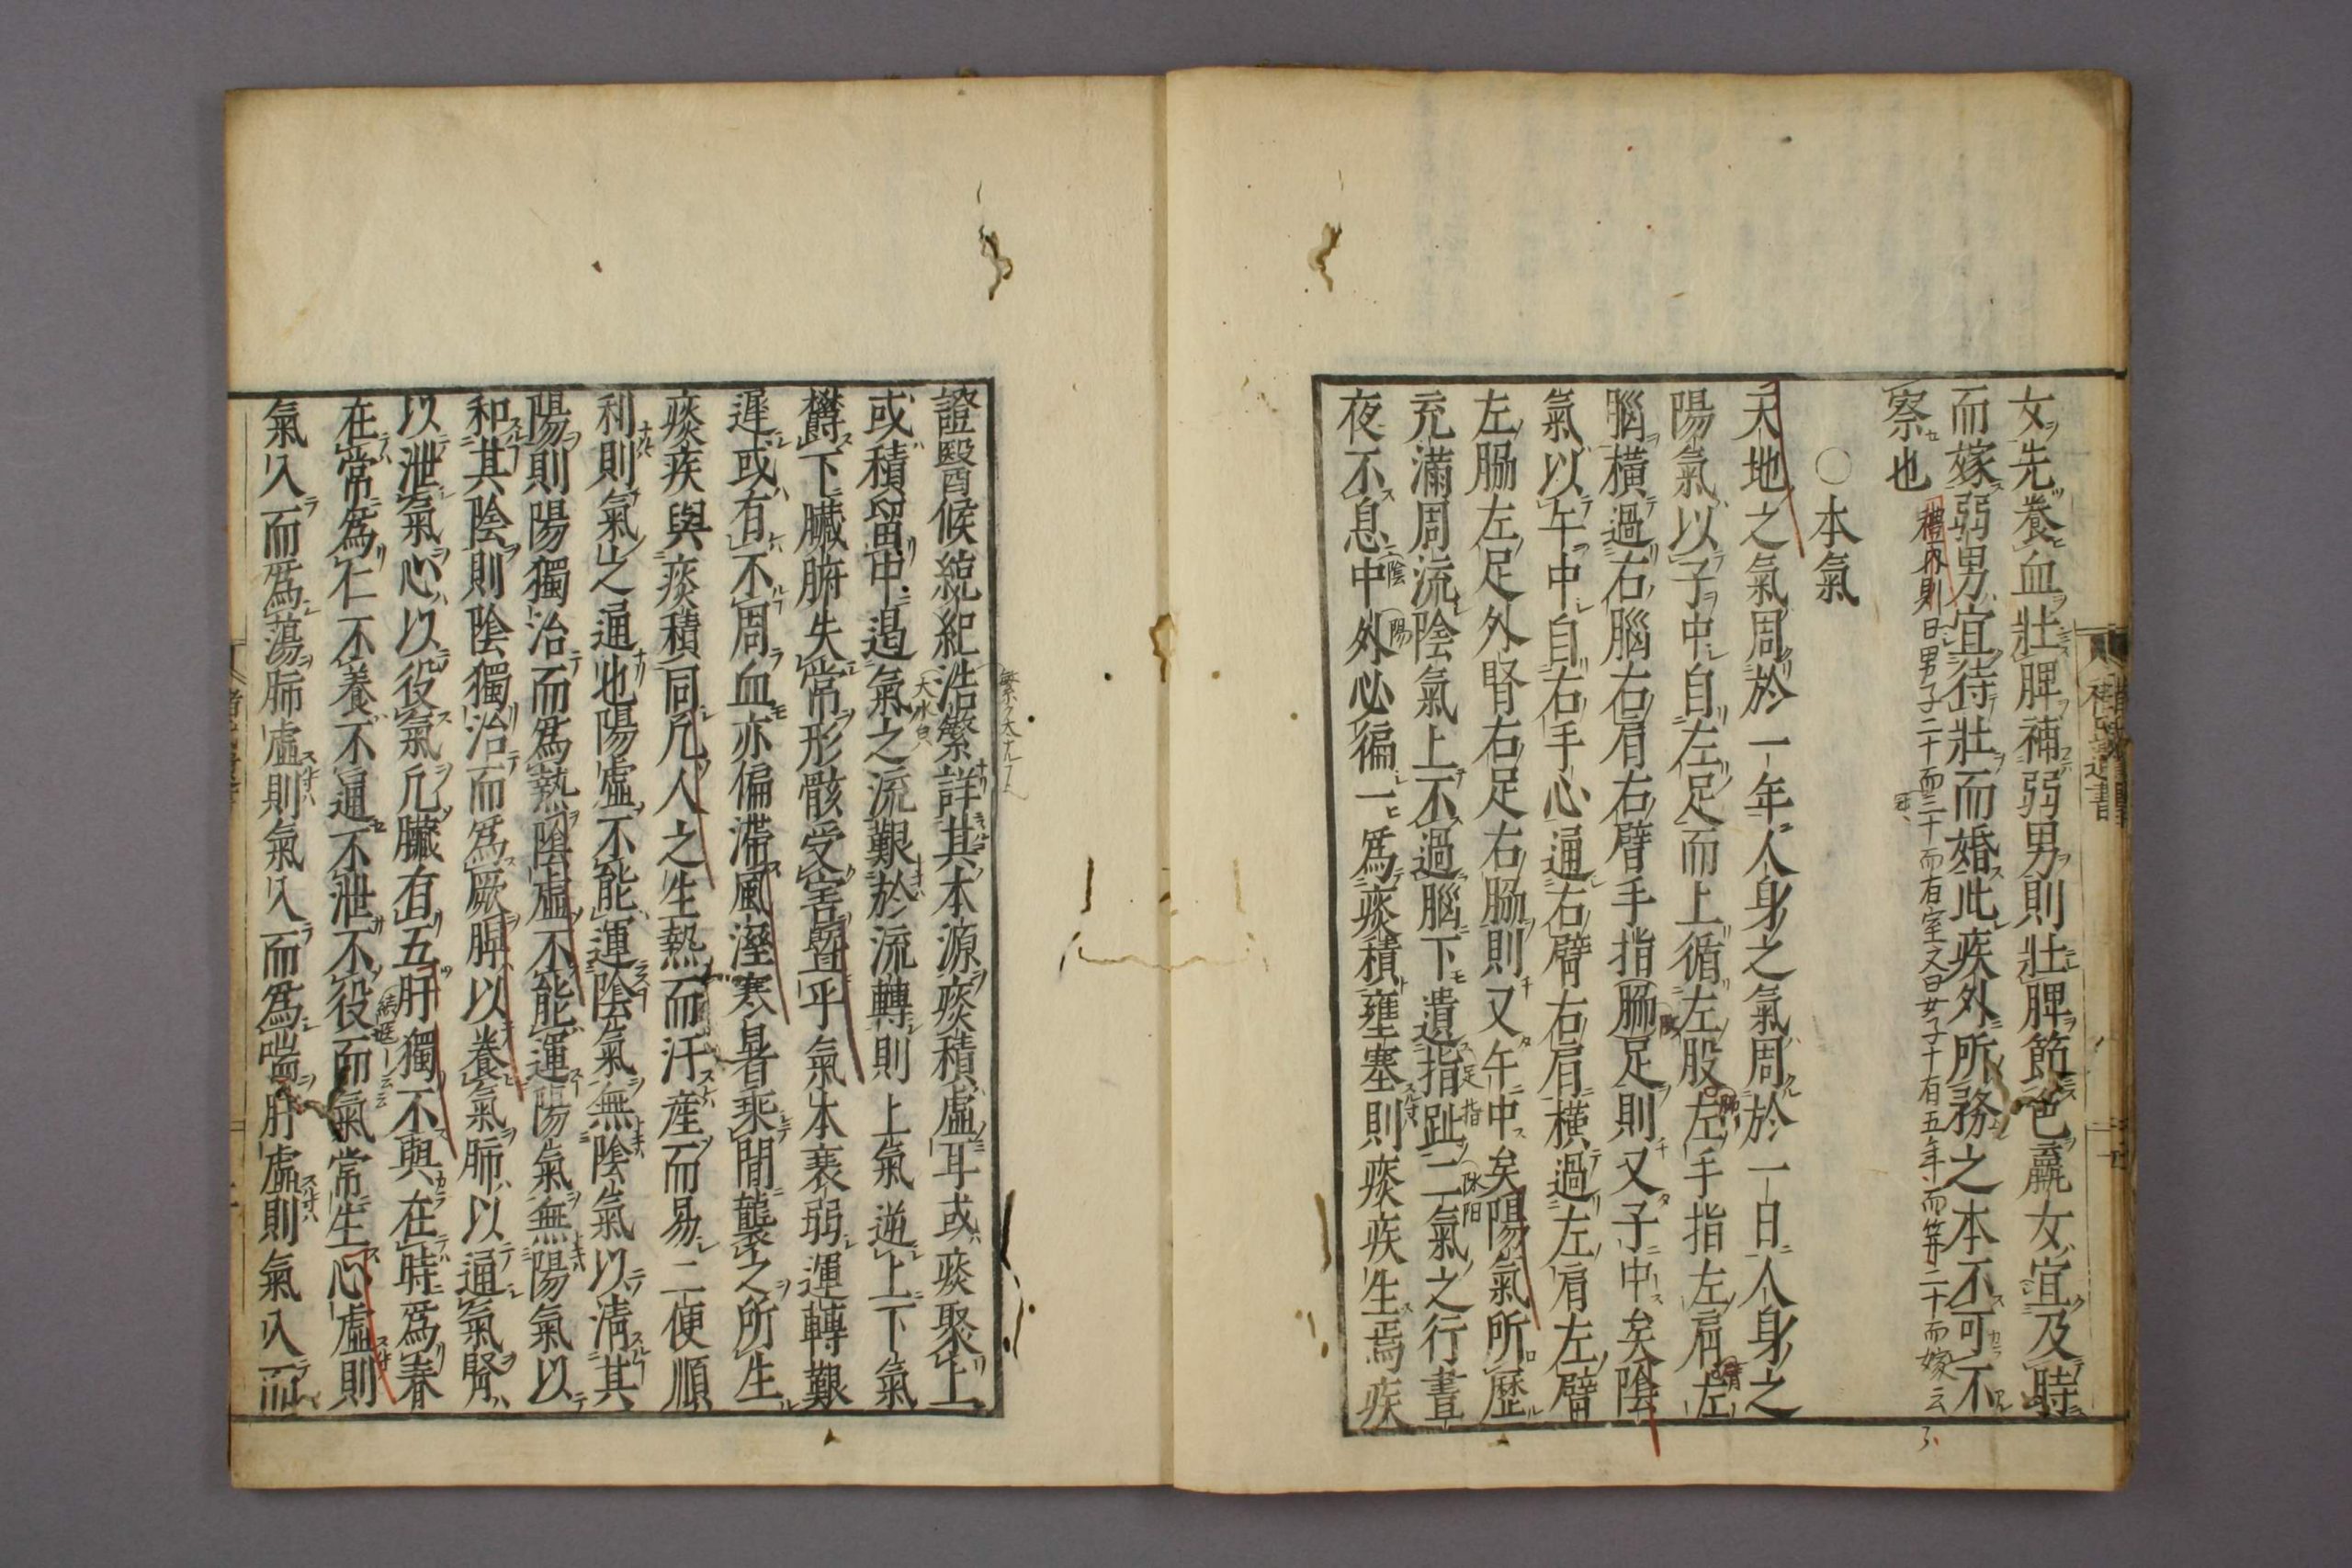 女先養血壯脾補弱男則壯脾節色羸女宜及時
而嫁弱男宜待壯而婚此疾外所務之本不可不
察也
禮內則曰男子二十而冠三十而有室又曰女子十有五年而笄二十而嫁云
〇本氣
天地之氣周於一年人身之氣周於一日人身之
陽氣以子中自左足而上循左股左手指左肩左
腦橫過右腦右肩右臂手指脇足則又子中矣陰
氣以午中自右手心通右臂右肩橫過左肩左臂
左脇左足外腎右足右脇則又午中矣陽氣所歷
充滿周流陰氣上不過腦下遺指趾二氣之行晝
夜不息中外必徧一爲痰積壅塞則痰疾生焉疾
證醫候統紀浩繁詳其本源痰積虛耳或痰聚上
或積留中遏氣之流艱於流轉則上氣逆上下氣
欝下臟腑失常形骸受害暨乎氣本衰弱運轉艱
遲或有不周血亦偏滯風溼寒暑乘間襲之所生
痰疾與痰積同凡人之生熱而汗産而易二便順
利則氣之通也陽虛不能運陰氣無陰氣以淸其
陽則陽獨治而爲熱陰虛不能運陽氣無陽氣以
和其陰則陰獨治而爲厥脾以養氣肺以通氣腎
以泄氣心以役氣凡臟有五肝獨不與在時爲春
在常爲仁不養不通不泄不役而氣常生心虛則
氣入而爲蕩肺虛則氣入而爲喘肝虛則氣入而